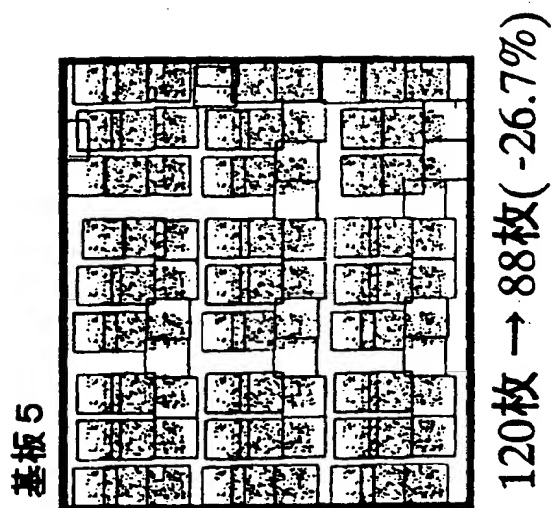 基板 5
120枚 → 88枚( -26.7%)